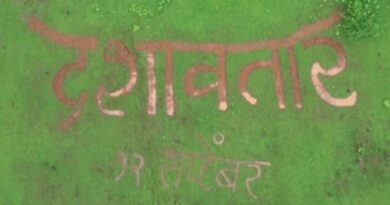 दशावतार
१२ सप्टेंबर